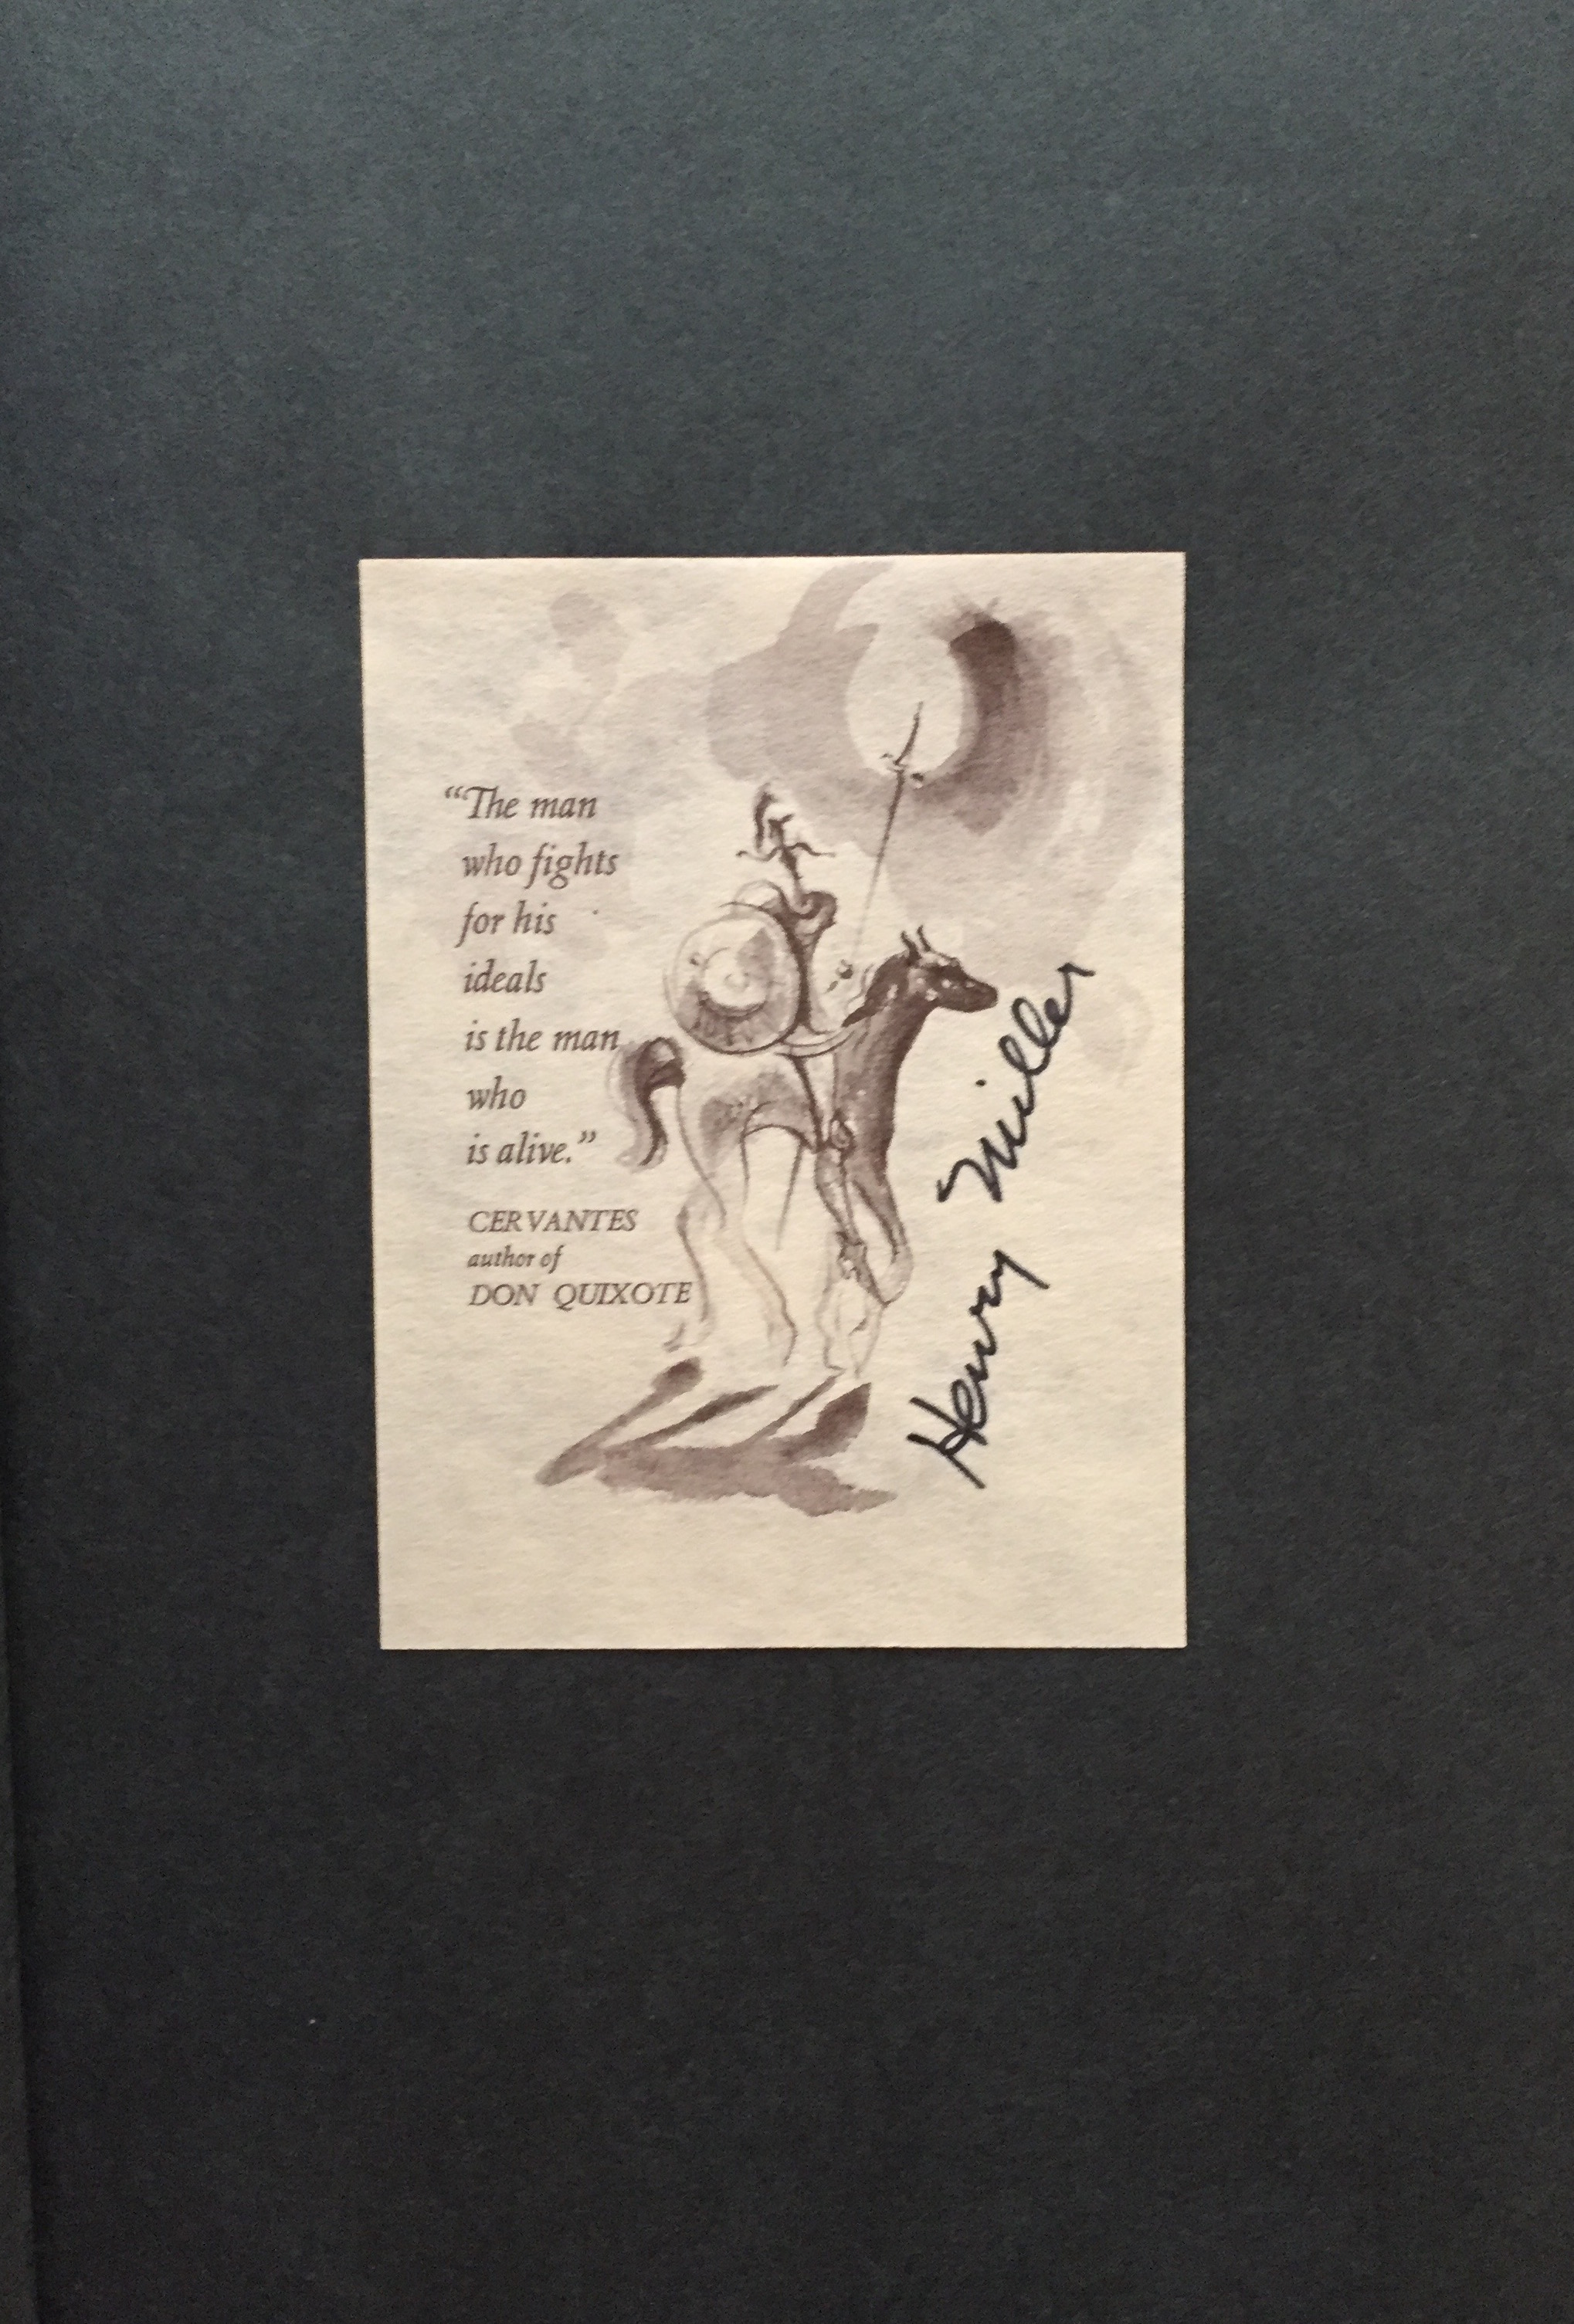 “The man
who fights
for his
ideals
is the man
who
is alive.”
CERVANTES
author of
DON QUIXOTE
Henry Miller